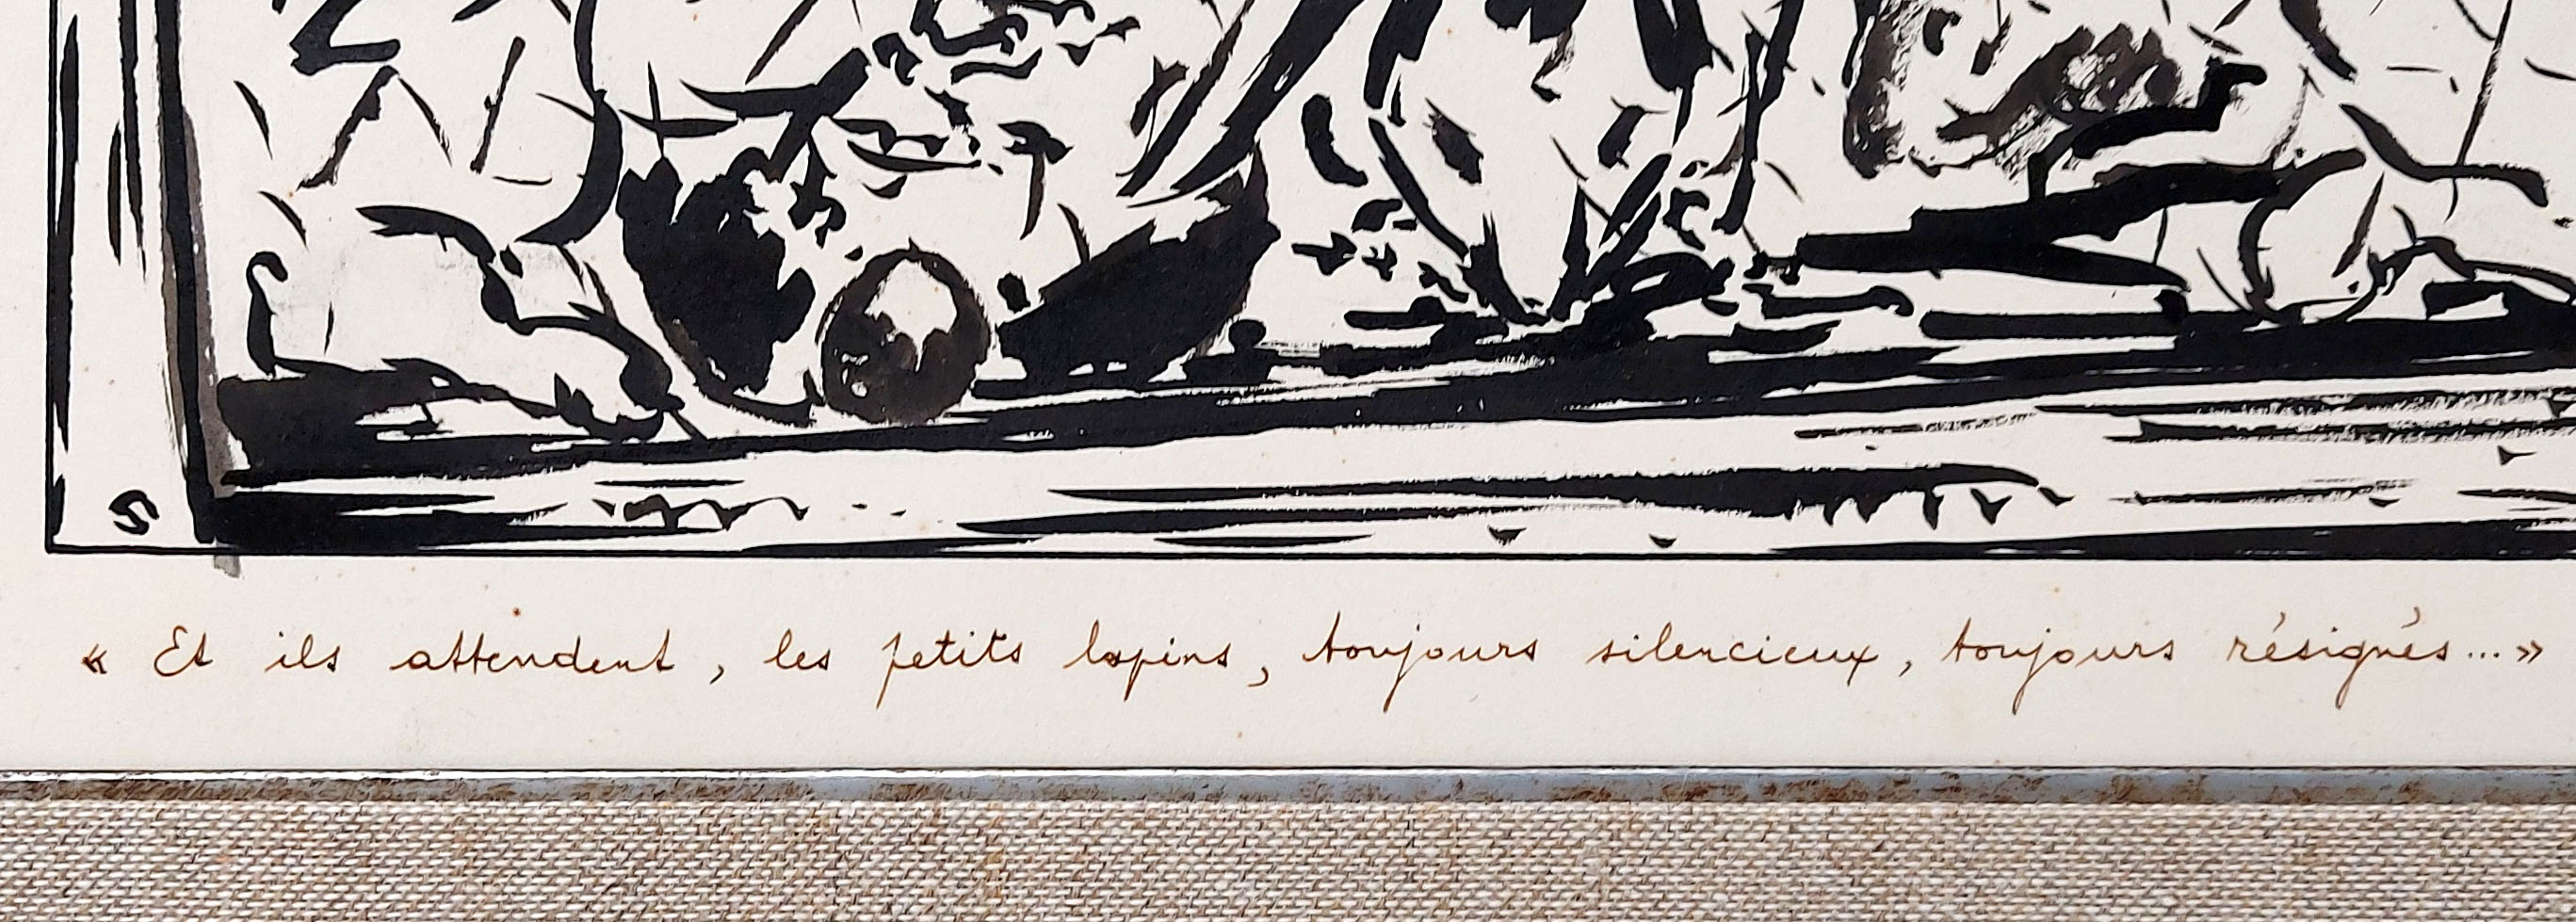 « Et ils attendent, les petits lapins, toujours silencieux, toujours résignés...»